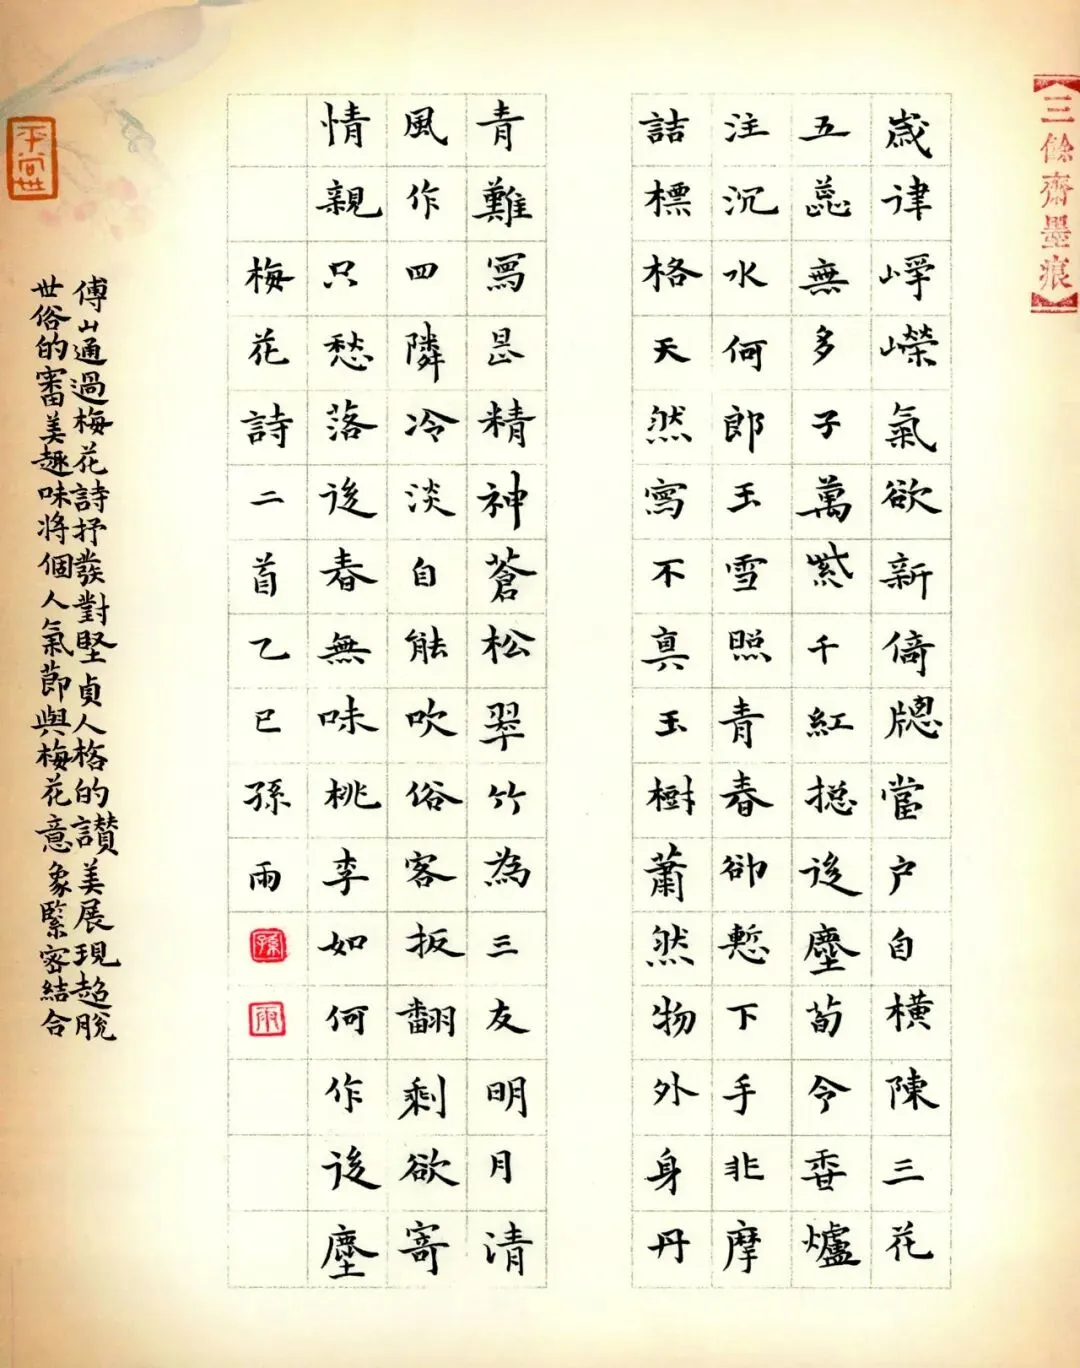 三餘齋墨痕
歲律崢嶸氣欲新倚牕當户自橫陳三花
五蕊無多子萬紫千紅揔後塵荀令香爐
注沉水何郎玉雪照青春卻慙下手非摩
詰標格天然寫不真玉樹蕭然物外身丹
青難寫是精神蒼松翠竹為三友明月清
風作四隣冷淡自能吹俗客扳翻剩欲寄
情親只愁落後春無味桃李如何作後塵
梅花詩二首乙巳孫雨
孫
雨
傅山通過梅花詩抒發對堅貞人格的讚美展現超脫
世俗的審美趣味將個人氣節與梅花意象緊密結合